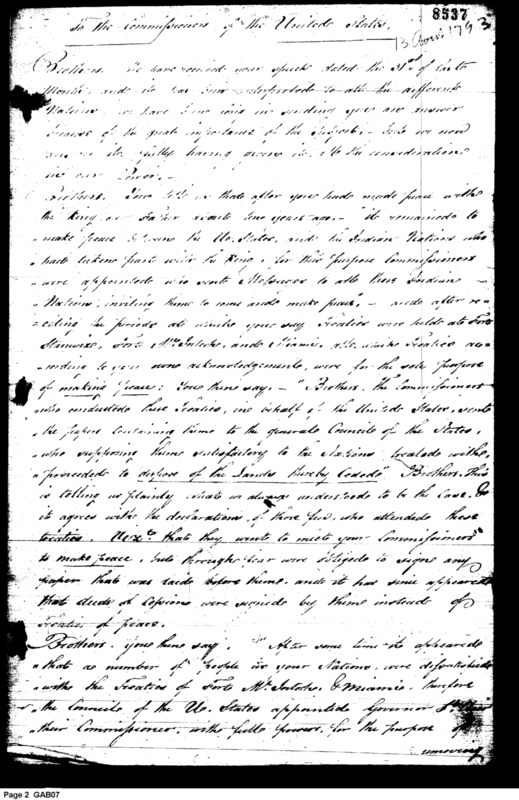 8537
To the Commissioners of the United States.
13 1793
Brothers. We have received your speech dated the 31st of last
Month, and it has been interpreted to all the different
Nations. We have been long in sending you an answer
because of the great importance of the subject. But we now
it fully having given it all the consideration
in our Power.
Brothers. You tell us that after you had made peace with
the King our Father about ten years ago, "it remained to
"make peace between the Ud. States, and the Indian Nations who
"had taken part with the King, for this purpose Commissioners
"were appointed who sent Messages to all those Indian
"Nations, inviting them to come and make peace" and after re-
=citing the periods at which you say Treaties were held at Fort
Stanwix, Fort McIntosh, and Miami, all which Treaties ac-
cording to your own acknowledgement, were for the sole purpose
of making peace; you then say, "Brothers, the Commissioners
"who conducted these Treaties, in behalf of the United States, sent
"the papers containing them to the general Councils of the States,
"who supposing them satisfactory to the Nations treated with,
"proceeded to dispose of the Lands thereby Ceded" Brothers, This
is telling us plainly, what we always understood to be the Case, &
it agrees with the declarations of those few, who attended these
treaties, that they went to meet your Commissioners
to make peace, but through fear were obliged to sign any
paper that was laid before them, and it has since appeared
that deeds of Cession were signed by them instead of
Treaties of peace.
Brothers, you then say, "After some time it appeared
"that a number of people in your Nations, were dissatisfied
"with the Treaties of Fort McIntosh, & Miami, therefore
"the Councils of the Ud. States appointed Governor
"their Commissioner, with full powers, for the purpose of
removing
Page 2 GAB07